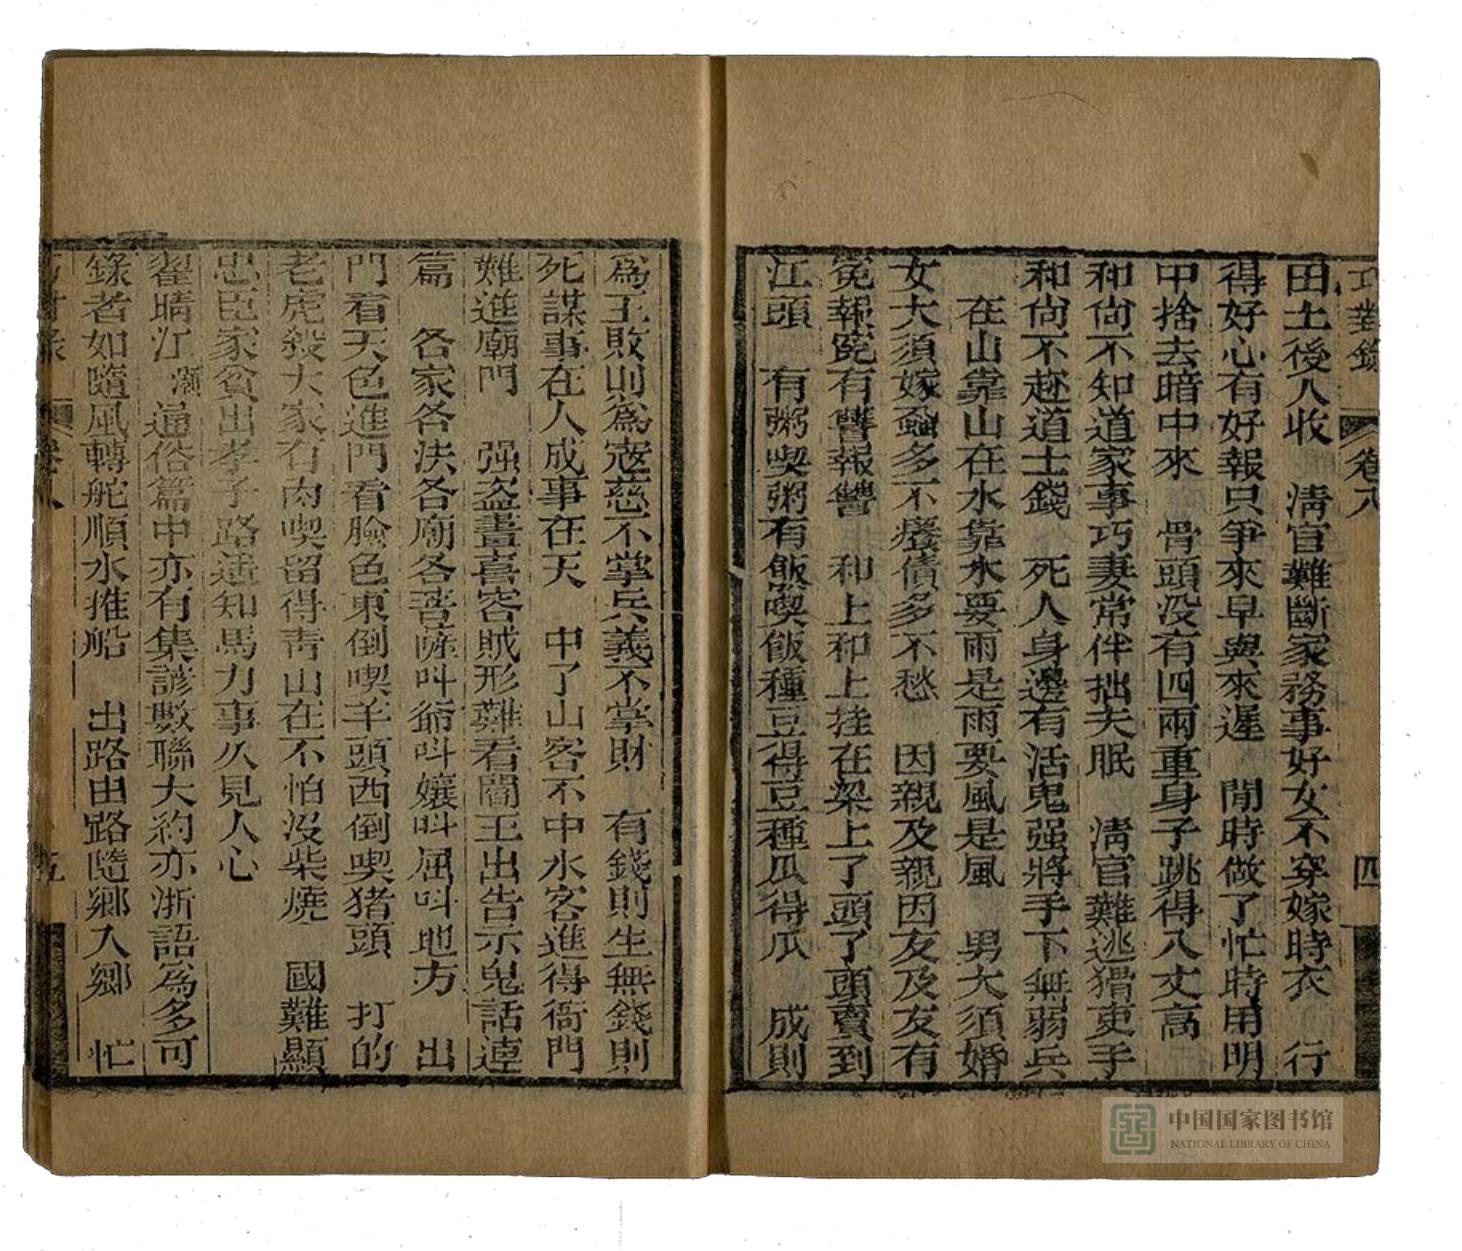 巧對錄 卷八 四
田土後人收　清官難斷家務事好女不穿嫁時衣　行
得好心有好報只爭來早與來遲　閒時做了忙時用明
中捨去暗中來　骨頭没有四兩重身子跳得八丈高
和尙不知道家事巧妻常伴拙夫眠　清官難逃猾吏手
和尙不赴道士錢　死人身邊有活鬼强將手下無弱兵
在山靠山在水靠水要雨是雨要風是風　男大須婚
女大須嫁蝨多不癢債多不愁　因親及親因友及友有
寃報寃有讐報讐　和上和上挂在梁上了頭了頭賣到
江頭　有粥喫粥有飯喫飯種豆得豆種瓜得瓜　成則
爲王敗則爲寇慈不掌兵義不掌財　有錢則生無錢則
死謀事在人成事在天　中了山客不中水客進得衙門
難進廟門　强盗畫喜容賊形難看閻王出告示鬼話連
篇　各家各決各廟各菩薩叫爺叫孃叫屈叫地方　出
門看天色進門看臉色東倒喫羊頭西倒喫猪頭　打的
老虎殺大家有肉喫留得靑山在不怕沒柴燒　國難顯
忠臣家貧出孝子路遥知馬力事久見人心
翟晴江灝通俗篇中亦有集諺數聯大約亦浙語爲多可
錄者如隨風轉舵順水推船　出路由路隨鄉入鄉　忙
巧對錄 卷八 五
中国国家图书馆
NATIONAL LIBRARY OF CHINA